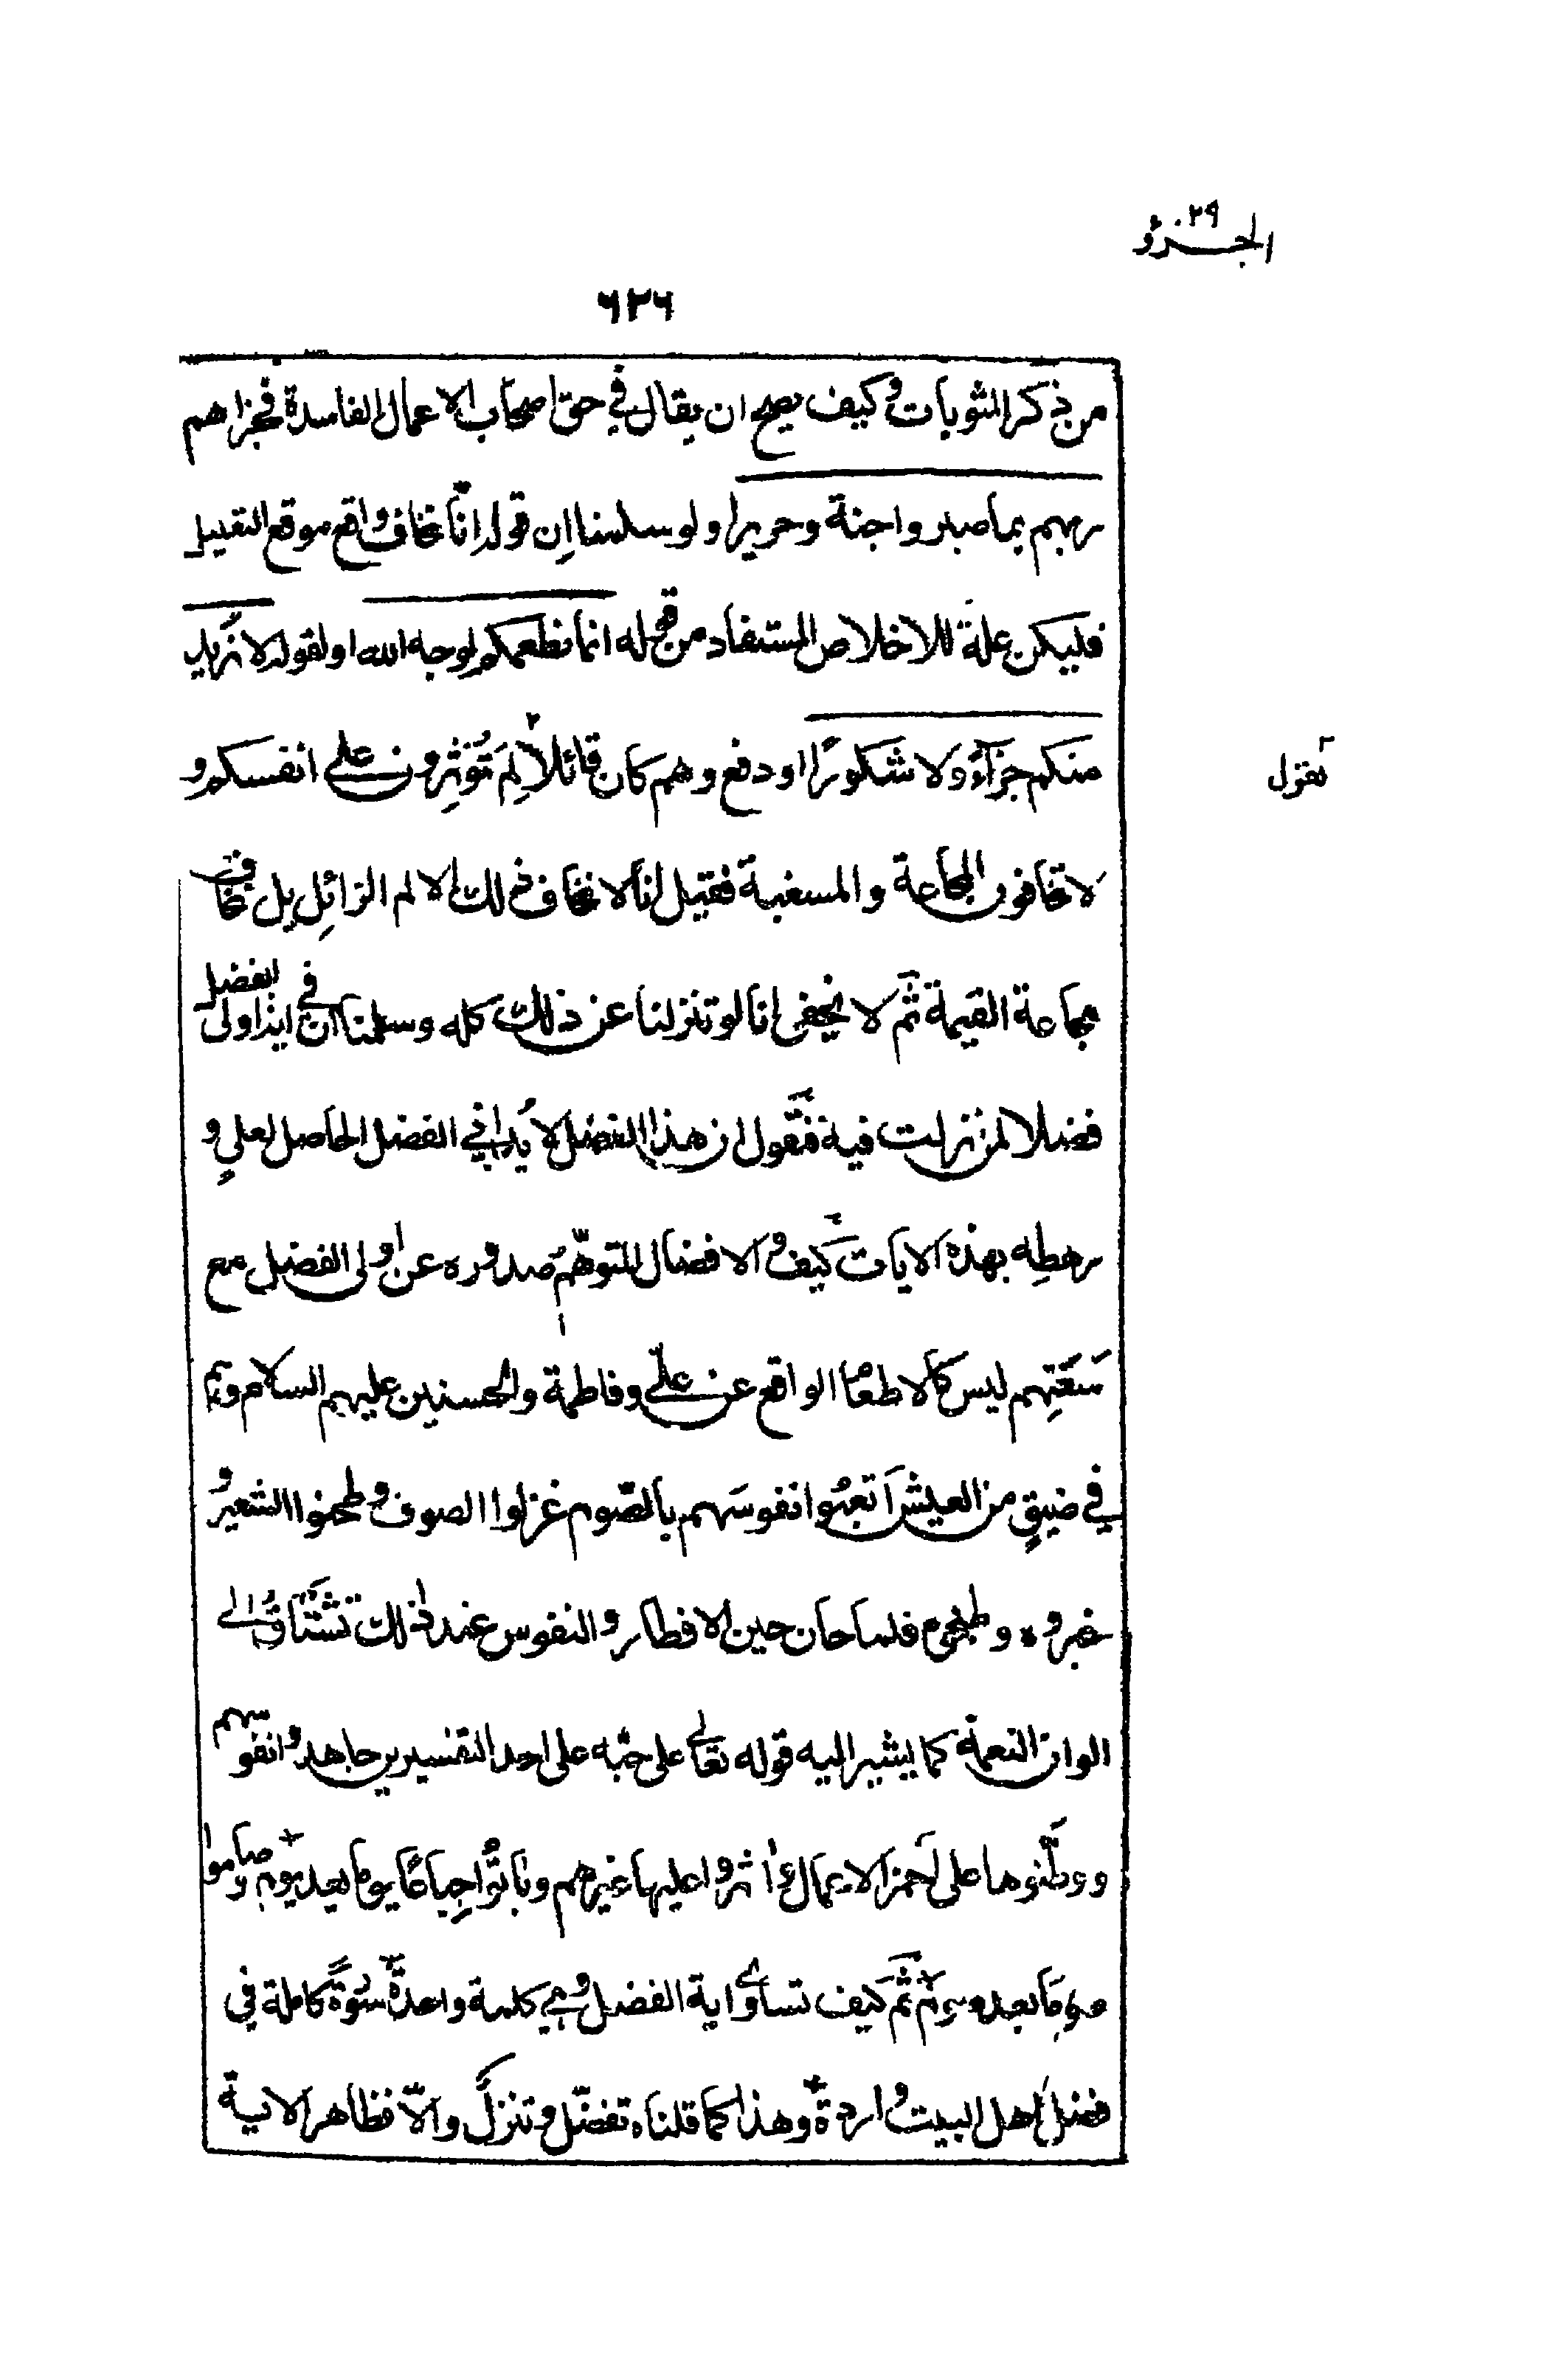 الجزؤ ٢٩
٦٢٦
من ذكر المثوبات وكيف يصح ان يقال في حق اصحاب الاعمال الفاسدة فجزاهم
ربهم بما صبروا جنة وحريرا ولو سلمنا ان قوله انا نخاف واقع موقع التعليل
فليكن علة للاخلاص المستفاد من قوله انما نطعمكم لوجه الله او لقوله لا نريد
منكم جزآءً ولا شكورًا او دفع وهم كان قائلاً لِمَ تُؤثِرون على انفسكم و
يقول
لا تخافون المجاعة والمسغبة فقيل انا لا نخاف ذلك الالم الزائل بل نخاف
مجاعة القيمة ثم لا يخفى انا لو تنزلنا عن ذلك كله وسلمنا ان في ايذا اولى الفضل
فضلا لمن نزلت فيه فنقول ان هذا الفضل لا يُدانى الفضل الحاصل لعلي و
رهطه بهذه الايات كيف والافضال المتوهّم صدوره عن اولى الفضل مع
سَعَتِهم ليس كالاطعام الواقع عن علي وفاطمة والحسنين عليهم السلام وهم
في ضيقٍ من العيش اَتعبُوا نفوسَهم بالصّوم غزلوا الصوف وطحنوا الشعير و
خبزوه و فلما حان حين الافطار والنفوس عند ذلك تشتاقُ الى
الوان النعمة كما يشير اليه قوله تعالى على حبّه على احد التفسيرين جاهدوا نفوسهم
ووطّنوها على احمز الاعمال واثروا عليها غيرهم وباتُوا جِياعًا يوما بعد يوم وصاموا
يوما بعد يوم ثم كيف تساوى اية الفضل وهي كلمة واحدة سُوَرةً كاملة في
فضل اهل البيت واردة وهذا كما قلناه تفضّل وتنزلّ والّا فظاهر الاية